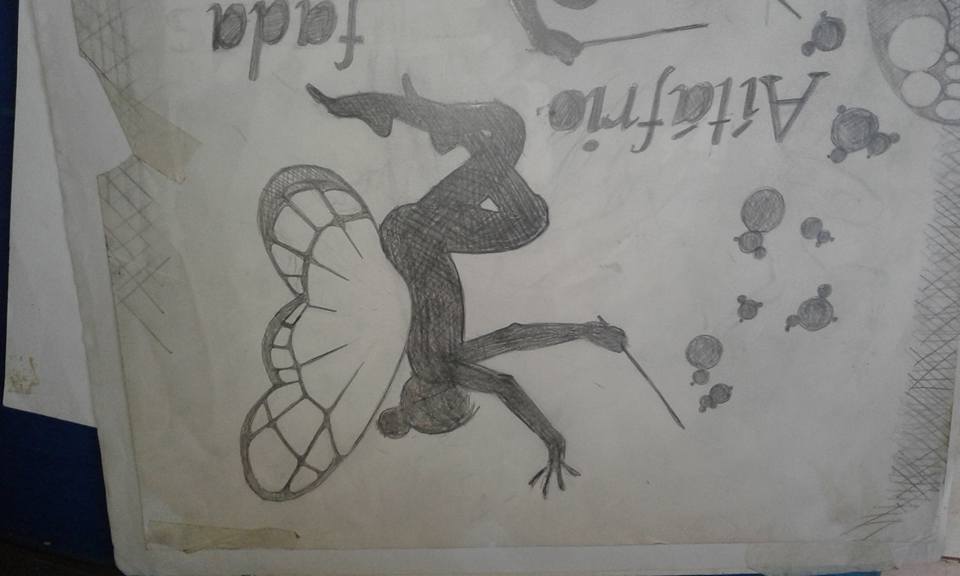 Aítáfrio
fada